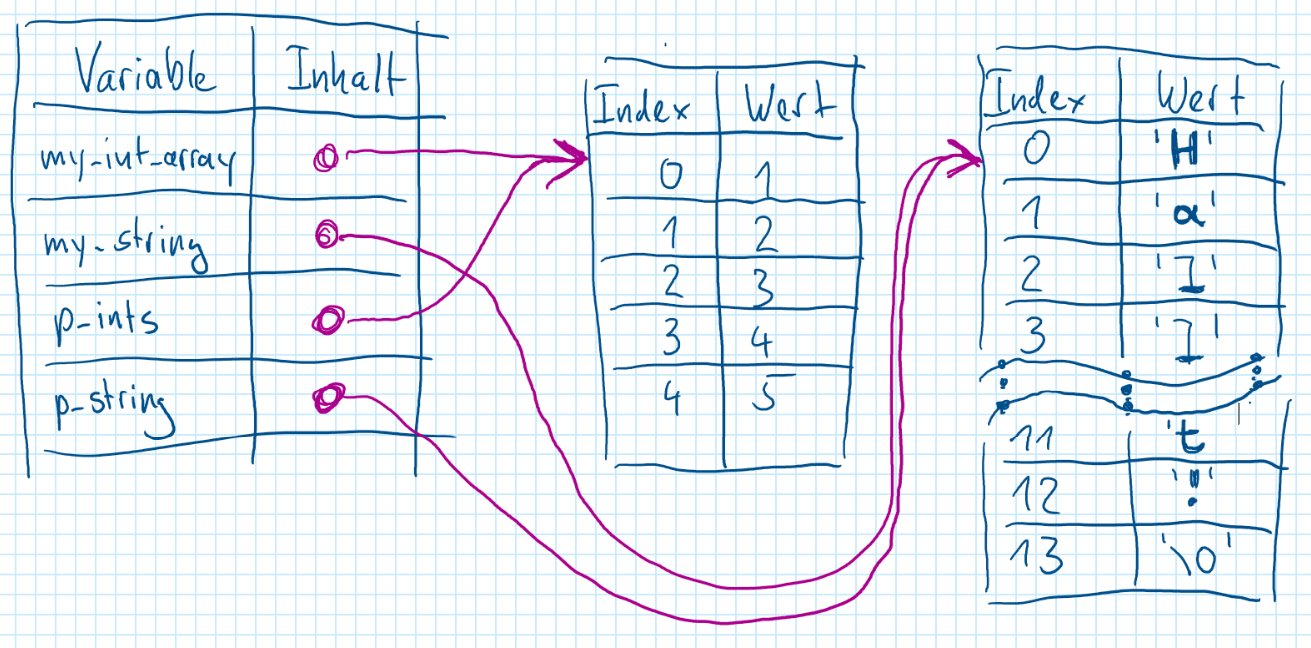 Variable Inhalt
my_int_array
my_string
p_ints
p_string
Index Wert
0 1
1 2
2 3
3 4
4 5
Index Wert
0 'H'
1 'a'
2 'l'
3 'l'
11 't
12 '!'
13 '\0'